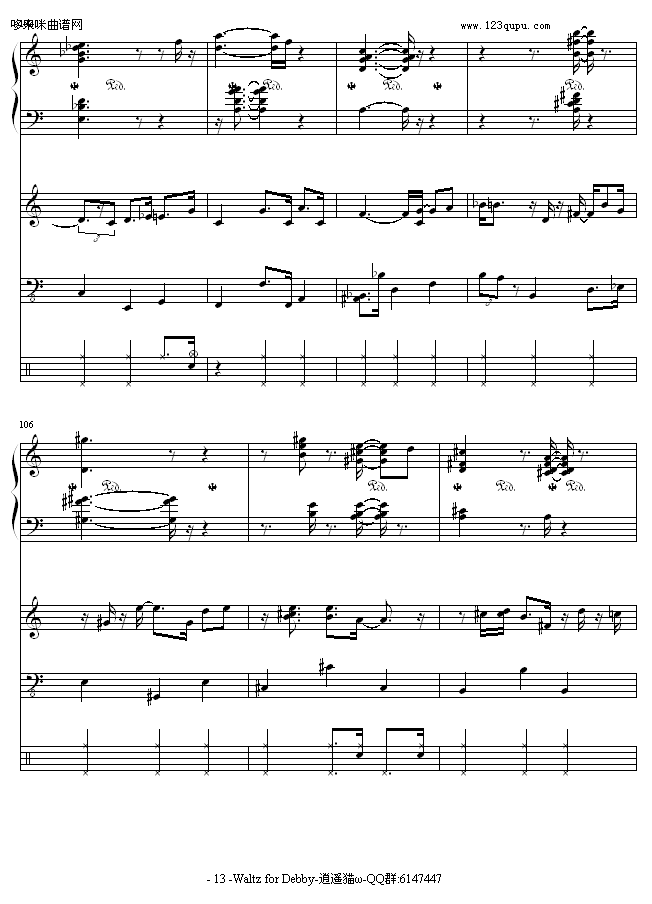 哆来咪曲谱网
www.123qupu.com
Ped. Ped. Ped. Ped.
3
3
106
Ped. Ped. Ped. Ped.
- 13 -Waltz for Debby-逍遥猫ω-QQ群:6147447